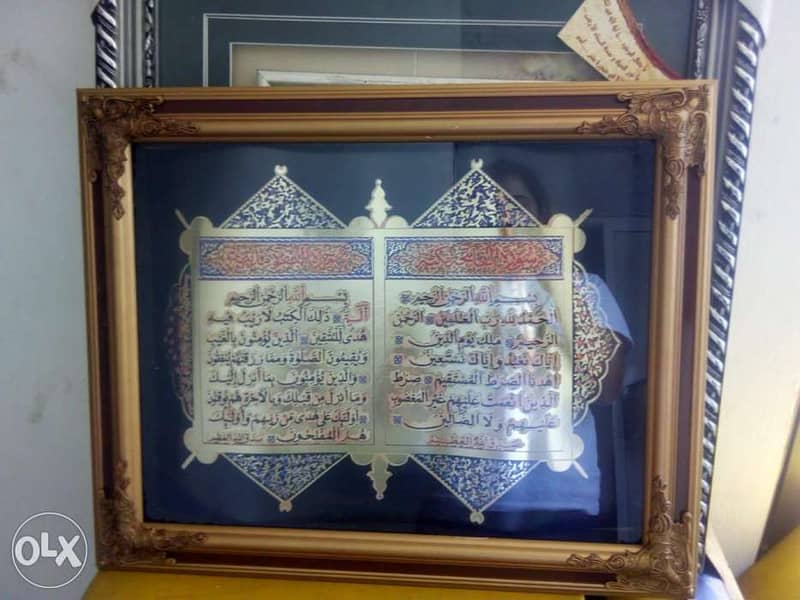 بسم الله الرحمن الرحيم
الحمد لله رب العلمين الرحمن
الرحيم ملك يوم الدين
إياك نعبد وإياك نستعين
اهدنا الصرط المستقيم صرط
الذين أنعمت عليهم غير المغضوب
عليهم ولا الضالين
صدق الله العظيم
بسم الله الرحمن الرحيم
الم ذلك الكتب لا ريب فيه
هدى للمتقين الذين يؤمنون بالغيب
ويقيمون الصلوة ومما رزقنهم ينفقون
والذين يؤمنون بما أنزل إليك
وما أنزل من قبلك وبالآخرة هم يوقنون
أولئك على هدى من ربهم وأولئك
هم المفلحون صدق الله العظيم
OLX